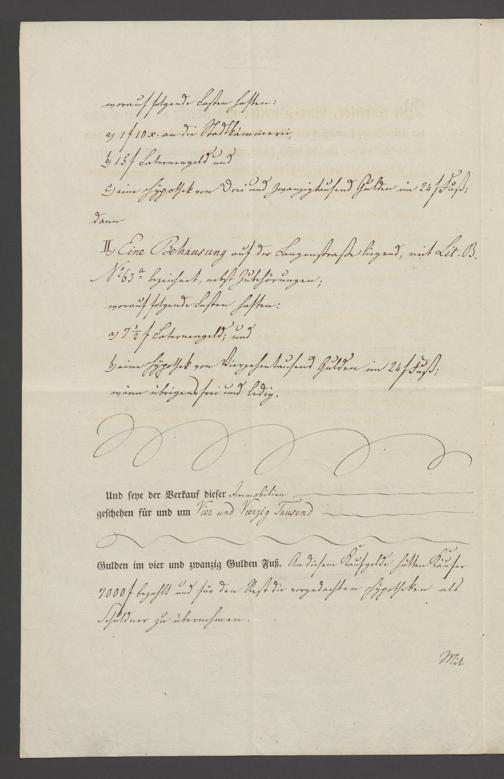 worauf folgende Lasten haften:
a) 1 f 10 x. an die Stadtkämmerei;
b) 15 f Laternengeld und
c) eine Hypothek von Drei und Zwanzigtausend Gulden im 24 f Fuß;
dann
II, Eine Behausung auf der Langenstraße liegend, mit Lit. B.
No 63 bezeichnet, nebst Zubehörungen;
worauf folgende Lasten haften:
a) 7 1/2 f Laternengeld; und
b) eine Hypothek von Vierzehntausend Gulden im 24 f Fuß;
wären übrigens frei und ledig.
Und seye der Verkauf dieser Immobilien
geschehen für und um Vier und Vierzig Tausend
Gulden im vier und zwanzig Gulden Fuß. An diesem Kaufgelde hätten Käufer
7000 f bezahlt und für den Rest die vorgedachten Hypotheken als
Schuldner zu übernehmen.
Mit